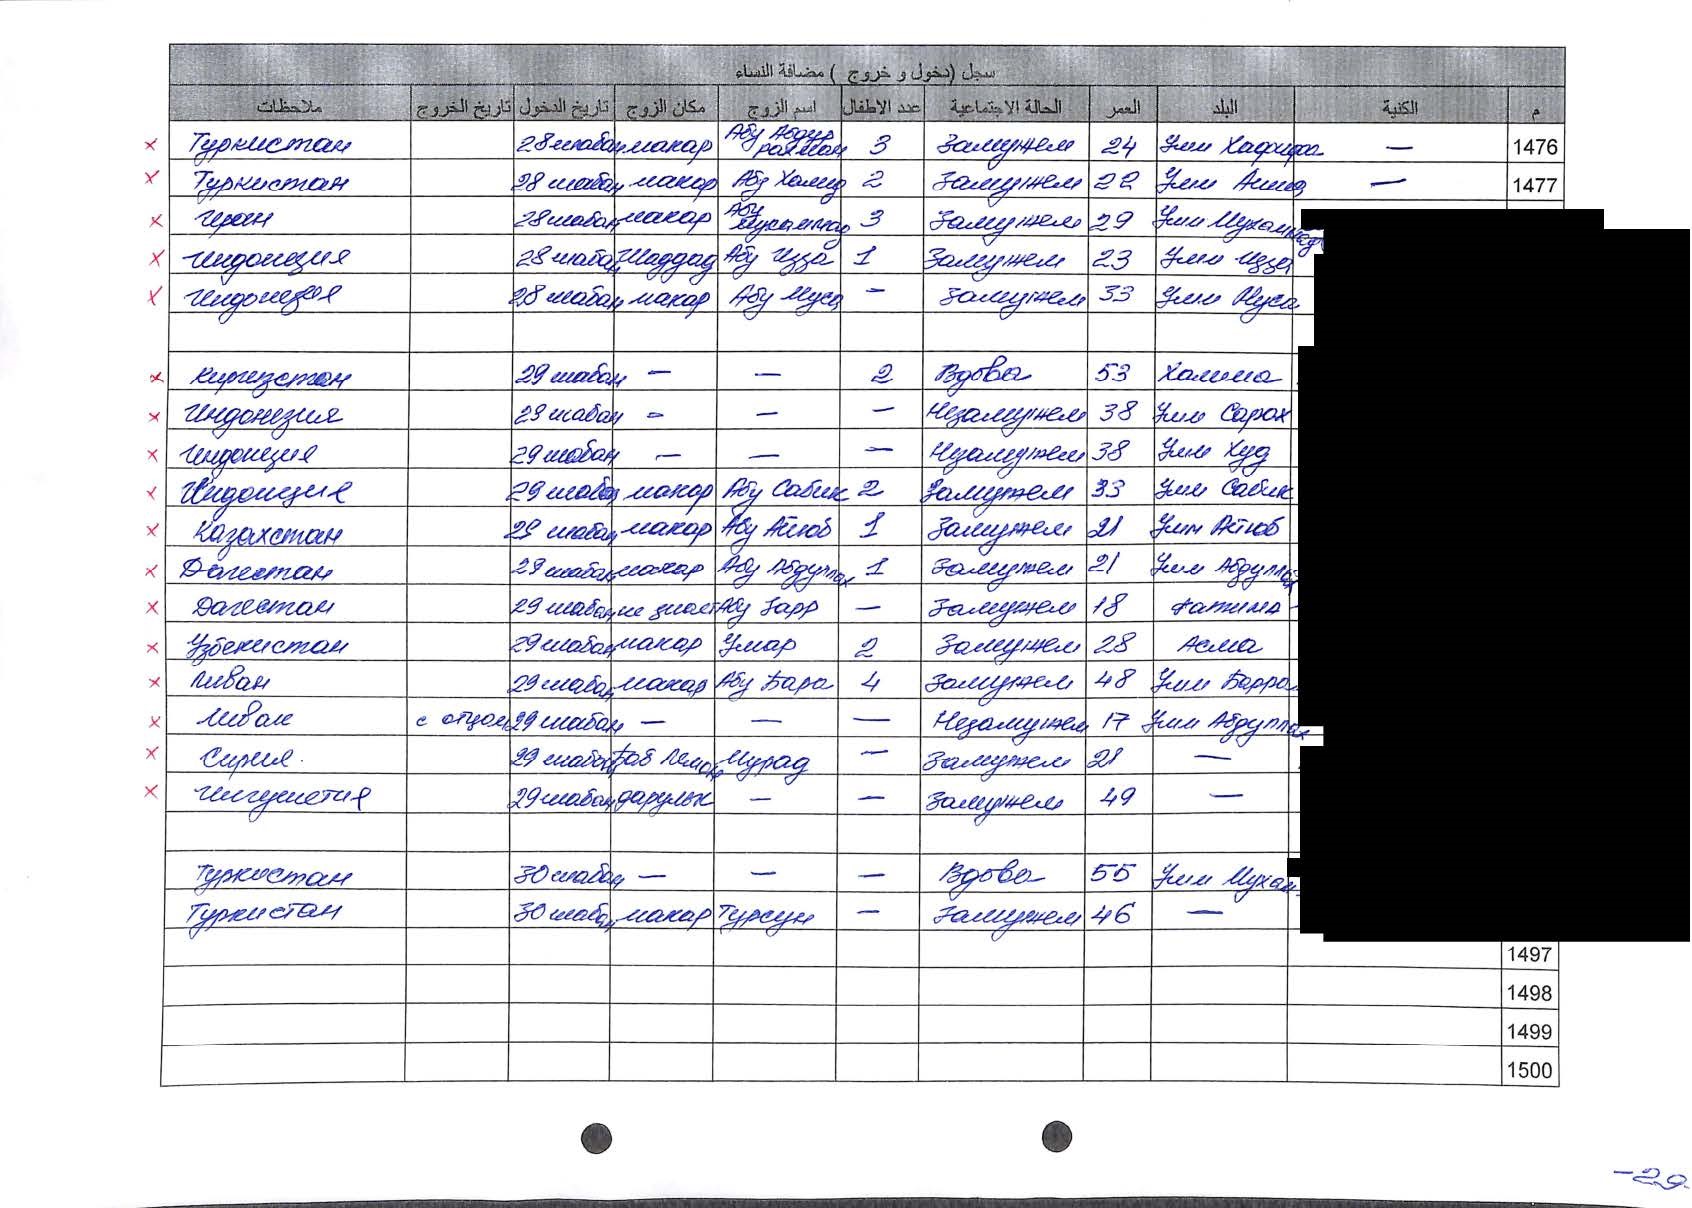 سجل (دخول و خروج ) مضافة النساء
م الكنية البلد العمر الحالة الاجتماعية عدد الاطفال اسم الزوج مكان الزوج تاريخ الدخول تاريخ الخروج ملاحظات
Туркистан 28 шабан макар Абу Абдур рахман 3 Замужем 24 Умм Хафиза — 1476
Туркистан 28 шабан макар Абу Хамид 2 Замужем 22 Умм — 1477
Иран 28 шабан макар Абу Мухаммад 3 Замужем 29 Умм Мухаммад
Индонезия 28 шабан Шаддад Абу Изза 1 Замужем 23 Умм Изза
Индонезия 28 шабан макар Абу Муса - Замужем 33 Умм Муса
Киргизстан 29 шабан — — 2 Вдова 53 Халима
Индонезия 29 шабан - — — Незамужем 38 Умм Сарах
Индонезия 29 шабан — — — Незамужем 38 Умм Худ
Индонезия 29 шабан макар Абу Сабик 2 Замужем 33 Умм Сабик
Казахстан 29 шабан макар Абу Айюб 1 Замужем 21 Умм Айюб
Дагестан 29 шабан макар Абу Абдуллах 1 Замужем 21 Умм Абдуллах
Дагестан 29 шабан не знает Абу Зарр — Замужем 18 Фатима
Узбекистан 29 шабан макар Умар 2 Замужем 28 Асма
Ливан 29 шабан макар Абу Бара 4 Замужем 48 Умм Барра
Ливан с отцом 29 шабан — — — Незамужем 17 Умм Абдуллах
Сирия 29 шабан Баб Мурад — Замужем 21 —
Ингушетия 29 шабан — — Замужем 49 —
Туркистан 30 шабан — — — Вдова 55 Умм Мухам
Туркистан 30 шабан макар Турсун — Замужем 46 —
1497
1498
1499
1500
-29-